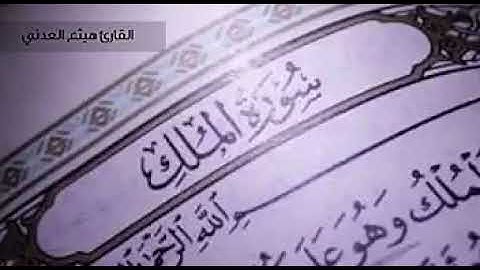 القارئ هيثم الدني
سُورَةُ المُلْكِ
ـمِ اللَّهِ الرَّحْمَٰنِ
ٱلْمُلْكُ وَهُوَ عَلَىٰ